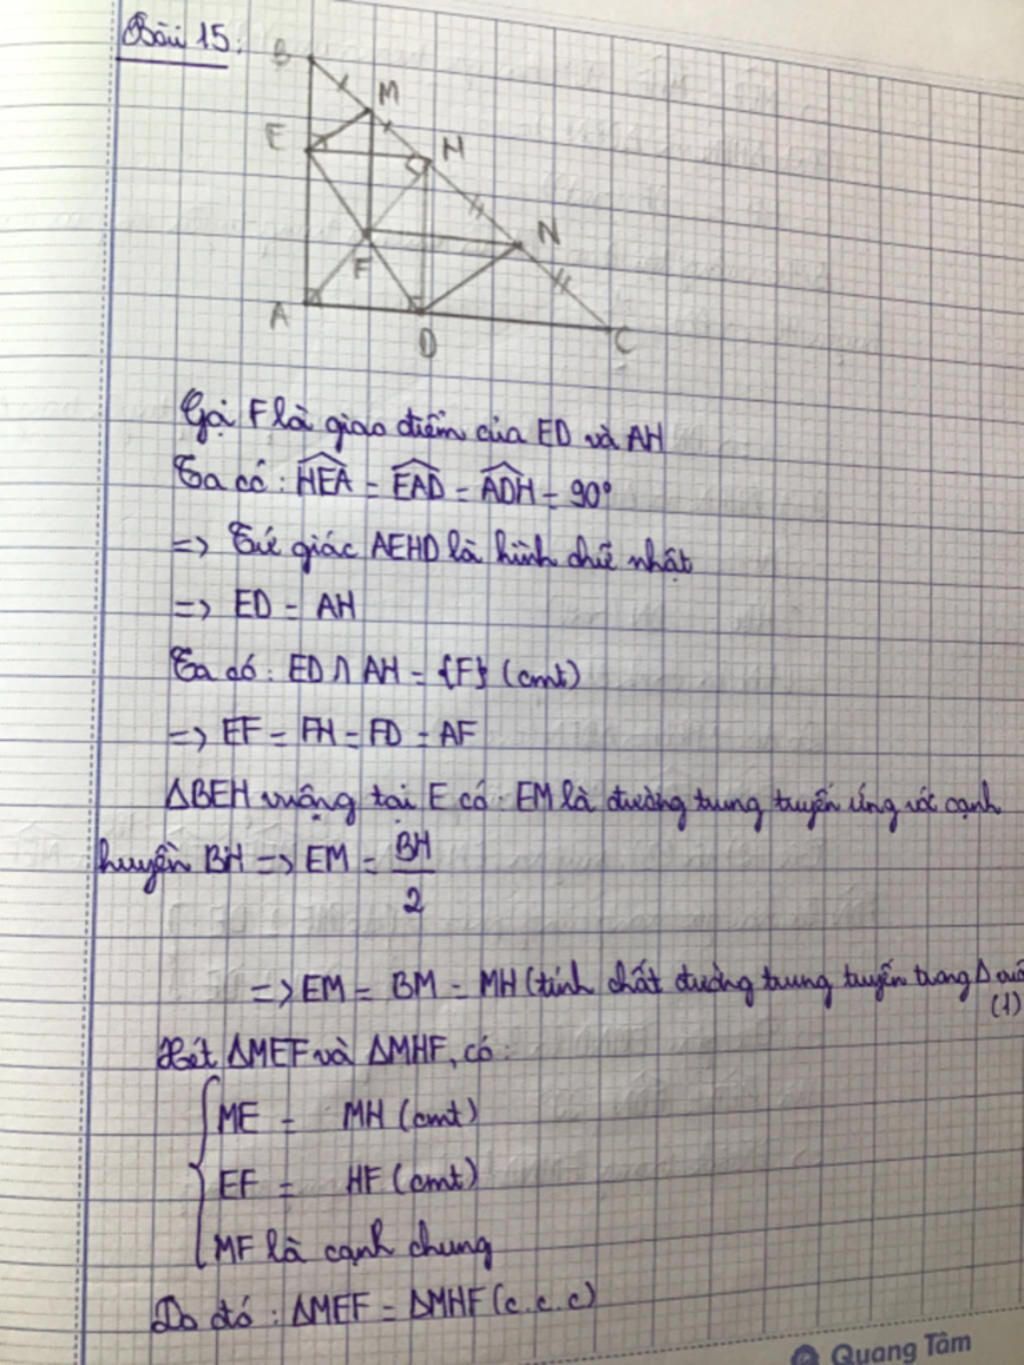 Bài 15:
B
M
E
H
N
F
A
D
C
Gọi F là giao điểm của ED và AH
Ta có: HEA = EAD = ADH = 90°
=> Tứ giác AEHD là hình chữ nhật
=> ED = AH
Ta có: ED ∩ AH = {F} (cmt)
=> EF = FH = FD = AF
ΔBEH vuông tại E có: EM là đường trung tuyến ứng với cạnh
huyền BH => EM = BH/2
=> EM = BM = MH (tính chất đường trung tuyến trong Δ
(1)
Xét ΔMEF và ΔMHF, có:
ME = MH (cmt)
EF = HF (cmt)
MF là cạnh chung
Do đó: ΔMEF = ΔMHF (c.c.c)
Quang Tâm